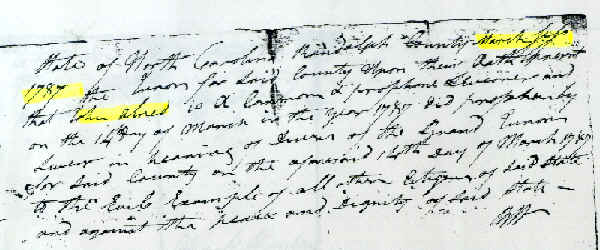 State of North Carolina Randolph County March
1787 The Jurors for Said County Upon their Oath
that is A Common & prophane Swearer and
on the 14th day of March in the year 1787 did prophanely
Swear in hearing of Divers of the Grand Jurors
for Said County on the aforesaid 14th Day of March 1787
to the Evile Example of all others Citizens of Said State
and against the peace and Dignity of Said State